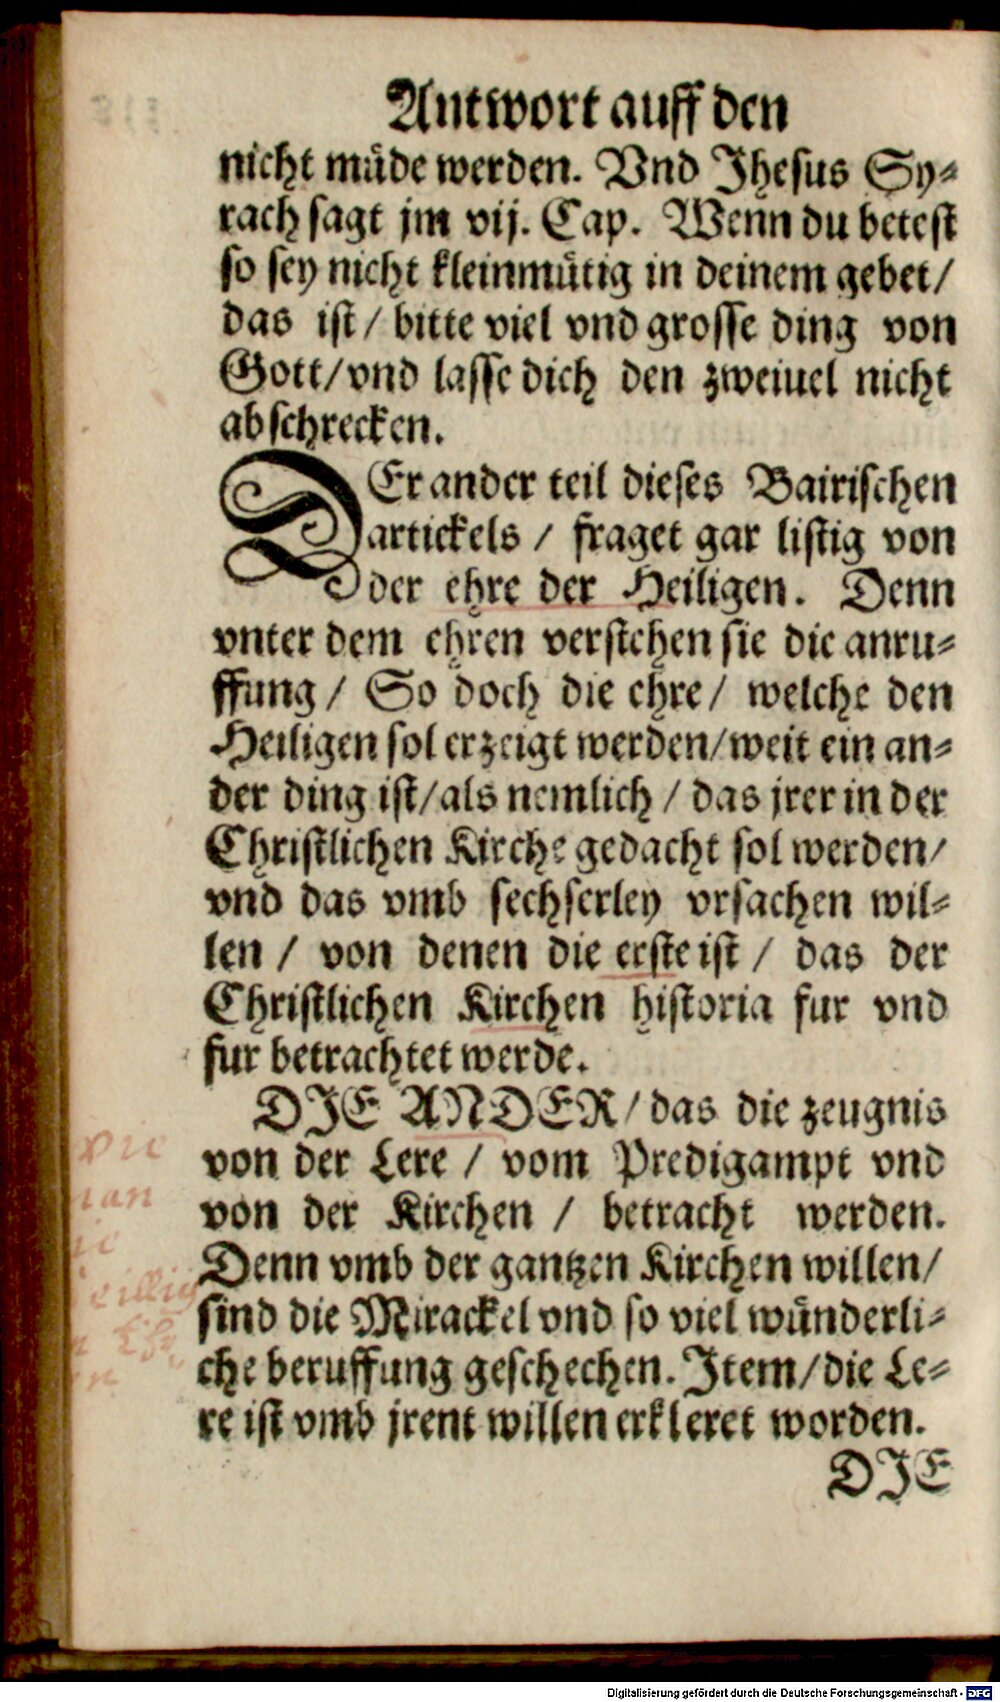 Antwort auff den
nicht müde werden. Vnd Jhesus Sy⸗
rach sagt jm vij. Cap. Wenn du betest
so sey nicht kleinmütig in deinem gebet/
das ist/ bitte viel vnd grosse ding von
Gott/vnd lasse dich den zweiuel nicht
abschrecken.
DEr ander teil dieses Bairischen
artickels / fraget gar listig von
der ehre der Heiligen. Denn
vnter dem ehren verstehen sie die anru⸗
ffung/ So doch die ehre/ welche den
Heiligen sol erzeigt werden/weit ein an⸗
der ding ist/als nemlich / das jrer in der
Christlichen Kirche gedacht sol werden/
vnd das vmb sechserley vrsachen wil⸗
len / von denen die erste ist / das der
Christlichen Kirchen historia fur vnd
fur betrachtet werde.
DJE ANDER/das die zeugnis
von der Lere / vom Predigampt vnd
von der Kirchen / betracht werden.
Denn vmb der gantzen Kirchen willen/
sind die Mirackel vnd so viel wünderli⸗
che beruffung geschechen. Jtem/die Le⸗
re ist vmb jrent willen erkleret worden.
DJE
Digitalisierung gefördert durch die Deutsche Forschungsgemeinschaft - DFG